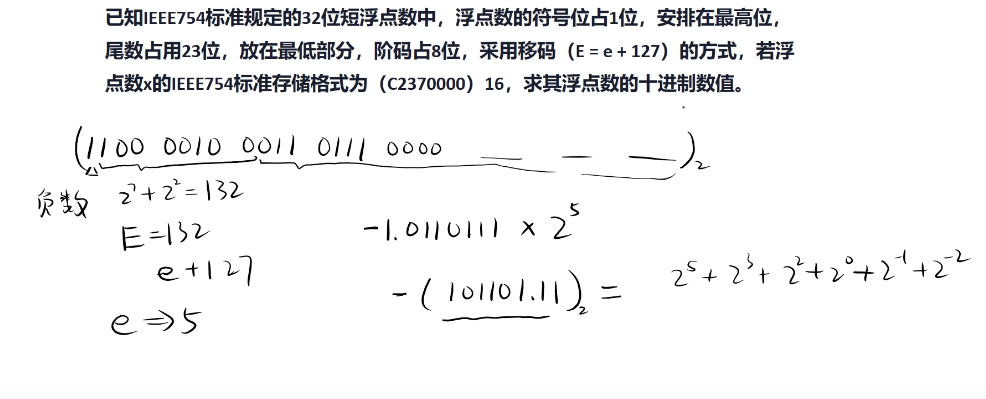 已知IEEE754标准规定的32位短浮点数中，浮点数的符号位占1位，安排在最高位，
尾数占用23位，放在最低部分，阶码占8位，采用移码（E = e + 127）的方式，若浮
点数x的IEEE754标准存储格式为（C2370000）16，求其浮点数的十进制数值。
(1100 0010 0011 0111 0000 __ __ __)₂
负数 2⁷+2²=132
E=132
e+127
e⇒5
-1.0110111 × 2⁵
-(101101.11)₂ = 2⁵+2³+2²+2⁰+2⁻¹+2⁻²